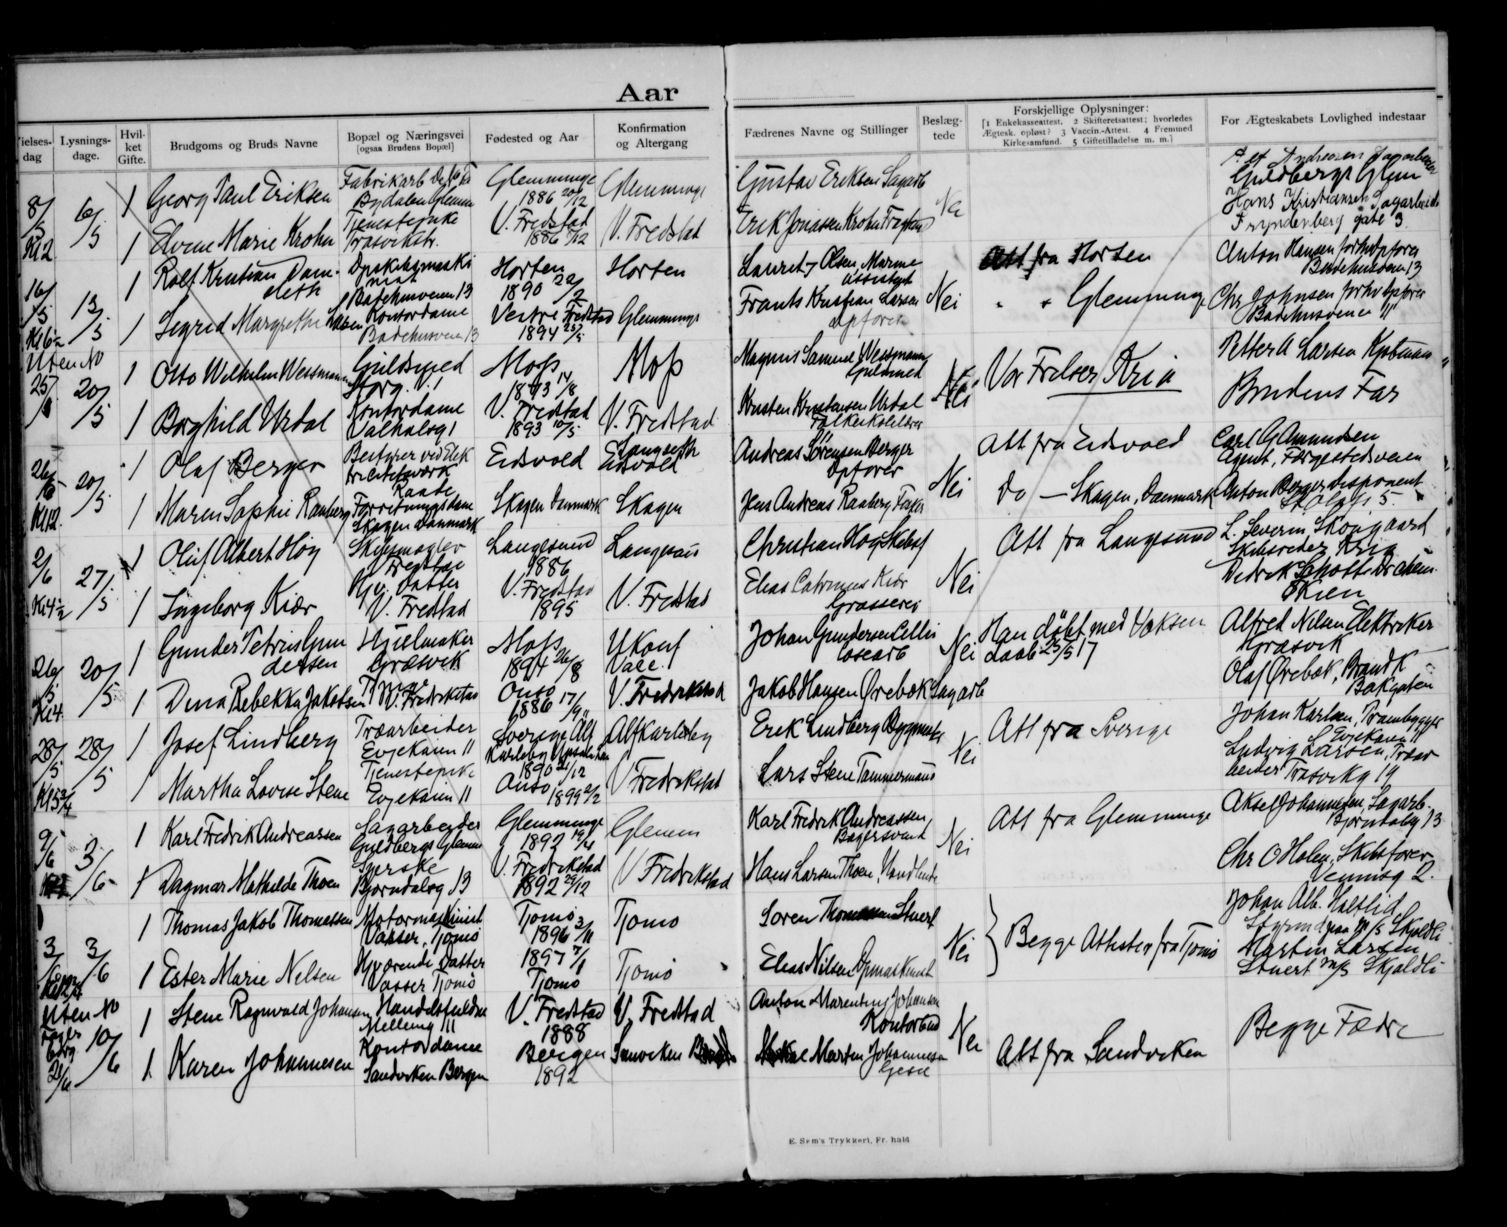 Aar
Vielses-
dag
Lysnings-
dage.
Hvil-
ket
Gifte.
Brudgoms og Bruds Navne
Bopæl og Næringsvei
[ogsaa Brudens Bopæl]
Fødested og Aar
Konfirmation
og Altergang
Fædrenes Navne og Stillinger
Beslæg-
tede
Forskjellige Oplysninger:
[1 Enkekasseattest. 2 Skifteretsattest; hvorledes
Ægtesk. opløst? 3 Vaccin.-Attest. 4 Fremmed
Kirkesamfund. 5 Giftetilladelse m. m.]
For Ægteskabets Lovlighed indestaar
8/5
Kl 2
6/5
1 Georg Paul Eriksen
Glemminge
1886 20/12
Glemminge
Gustav Eriksen Sagarb
Nei
Andreassen Sagarbeider
Guldbergs Glem
1 Elvine Marie Krohn
Tjenestepike
Træsvikstr.
V. Fredstad
1886 /12
V. Fredstad
Erik Jonassen Krohn
Hans Kristiansen Sagarbeider
gate 3
16/5
Kl 6 1/2
13/5
1 Rolf Kristian Dam-
sleth
Badehusveien 13
Horten
1890
Horten
Lauritz Olsen, Marine
Nei
Att fra Horten
Anton Hansen forhv Opfører
Badehusveien 13
1 Sigrid Margrethe Larsen
Kontordame
Badehusveien 13
Vestre Fredstad
1894 25/5
Glemminge
Frants Kristian Larsen
Opfører
" " Glemminge
Chr Johnsen forhv Opfører
Badehusveien 11
Uten No
25/6
20/5
1 Otto Wilhelm Wessmann
Guldsmed
Storg. 1
Moss
1893 14/8
Moss
Magnus Samuel Wessmann
Guldsmed
Nei
Vor Frelser Kria
Petter A Larsen Kjøbmann
1 Borghild Urdal
Kontordame
Valhalsg 1
V. Fredstad
1893 10/5
V. Fredstad
Kristen Kristensen Urdal
Folkeskolelærer
Brudens Far
26/6
Kl 12
20/5
1 Olaf Berger
Bestyrer ved Elek
tricitetsverk
Raade
Eidsvold
Langseth
Eidsvold
Andreas Sørensen Berger
Opfører
Nei
Att fra Eidsvold
Carl G Amundsen
Agent, Færgestedsveien
1 Maren Sophie Raaberg
Forretningsdame
Skagen Danmark
Skagen Danmark
Skagen
Jens Andreas Raaberg, Fisker
Do — Skagen, Danmark
Anton Berger disponent
St Olafs 5
2/6
Kl 4 1/2
27/5
1 Olaf Albert Høy
Skibsmægler
Fredstad
Langesund
1886
Langesund
Christian Høy Skibsf
Nei
Att fra Langesund
L. Severin Skougaard
Skibsreder, Kria
1 Ingeborg Kiær
Hjv. datter
V. Fredstad
V. Fredstad
1895
V. Fredstad
Elias Cathrinus Kiær
Grosserer
Didrik Schøtt
Skien
26/5
Kl 4
20/5
1 Gunder Petrius Gun
dersen
Hjulmaker
Græsvik
Moss
1894 26/8
Ukonf
Johan Gundersen Cellu
losearb
Nei
Han døbt med Voksen
daab 25/5 17
Alfred Nilsen Elektriker
Græsvik
1 Dina Rebekka Jakobsen
V. Fredrikstad
Onsø
1886 17/9
V. Fredrikstad
Jakob Hansen Ørebæk Sagarb
Olaf Ørebæk, Brandk
Bakgaten
28/5
Kl 5 3/4
28/5
1 Josef Lindberg
Træarbeider
Evjekaun 11
Sverige Elf
Karleby Upsala län
1890 21/12
Elfkarleby
Erik Lindberg Bygmester
Nei
Att fra Sverige
Johan Karlsen,
Evjekaun 11
1 Martha Lovise Stene
Tjenestepike
Evjekaun 11
Onsø
1899 2/2
V Fredrikstad
Lars Stene Tømmermand
Ludvig Larsen, Træar
beider Træsvikg 19
9/6
3/6
1 Karl Fredrik Andreassen
Sagarbeider
Guldbergs Glemm
Glemminge
1892 19/4
Glemm
Karl Fredrik Andreassen
Bøgersvend
Nei
Att fra Glemminge
Aksel Johannesen, Sagarb.
Bjørndalsg 13
1 Dagmar Mathilde Thoen
Syerske
Bjørndalsg 13
V. Fredrikstad
1892 29/12
V Fredrikstad
Hans Larsen Thoen, Handlende
Chr O Holen, Skibsfører
Vennisg 2.
3/6
3/6
1 Thomas Jakob Thomassen
Motormaskinist
Vasser, Tjømø
Tjømø
1896 3/11
Tjømø
Søren Thomassen Stuert
Nei
Begge Attester fra Tjømø
Johan Alb. Halflid
Styrmand paa M/S Skjoldli
1 Ester Marie Nilsen
Hjværende Datter
Vasser Tjømø
1897 7/1
Tjømø
Tjømø
Elias Nilsen, Opmaskinist
Martin Larsen
Stuert M/S Skjoldli
Uten No
10/6
1 Stene Ragnvald Johansen
Handelsfuldm
Mellemg 11
V. Fredstad
1888
V. Fredstad
Anton Marentius Johansen
Kontorbud
Nei
Begge Fædre
1 Karen Johannesen
Kontordame
Sandviken Bergen
Bergen
1892
Sandviken
Morten Johannesen
Att fra Sandviken
E. Sem's Trykkeri, Fr. hald